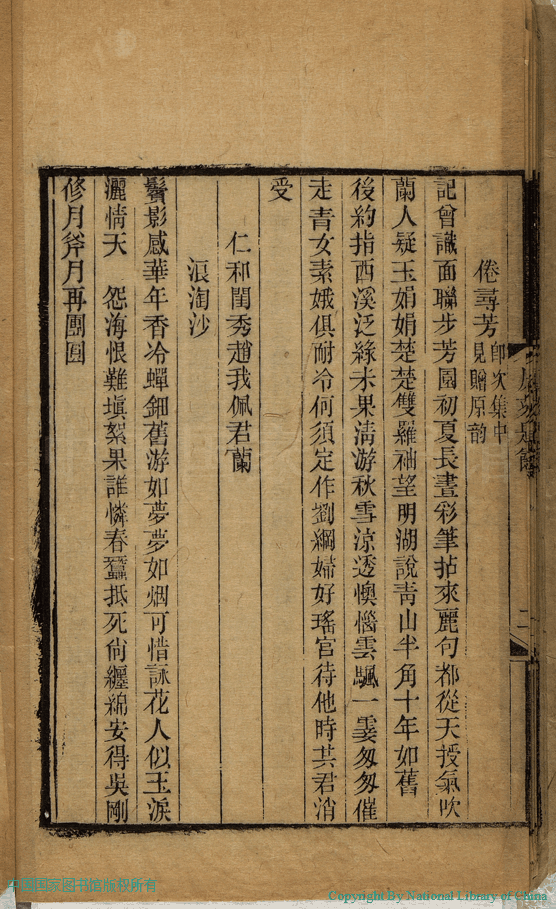 倦尋芳即次集中見贈原韵
記曾識面聯步芳園初夏長晝彩筆拈來麗句都從天授氣吹
蘭人疑玉娟娟楚楚雙羅袖望明湖說青山半角十年如舊
後約指西溪泛綠未果清游秋雪涼透懊惱雲颿一霎匆匆催
走青女素娥俱耐冷何須定作劉綱婦好瑤宫待他時共君消
受
仁和閨秀趙我佩君蘭
浪淘沙
鬢影感華年香冷蟬鈿舊游如夢夢如烟可惜詠花人似玉淚
灑情天　怨海恨難塡絮果誰憐春蠶抵死尙纏綿安得吳剛
修月斧月再團圓
二
中国国家图书馆版权所有
Copyright By National Library of China